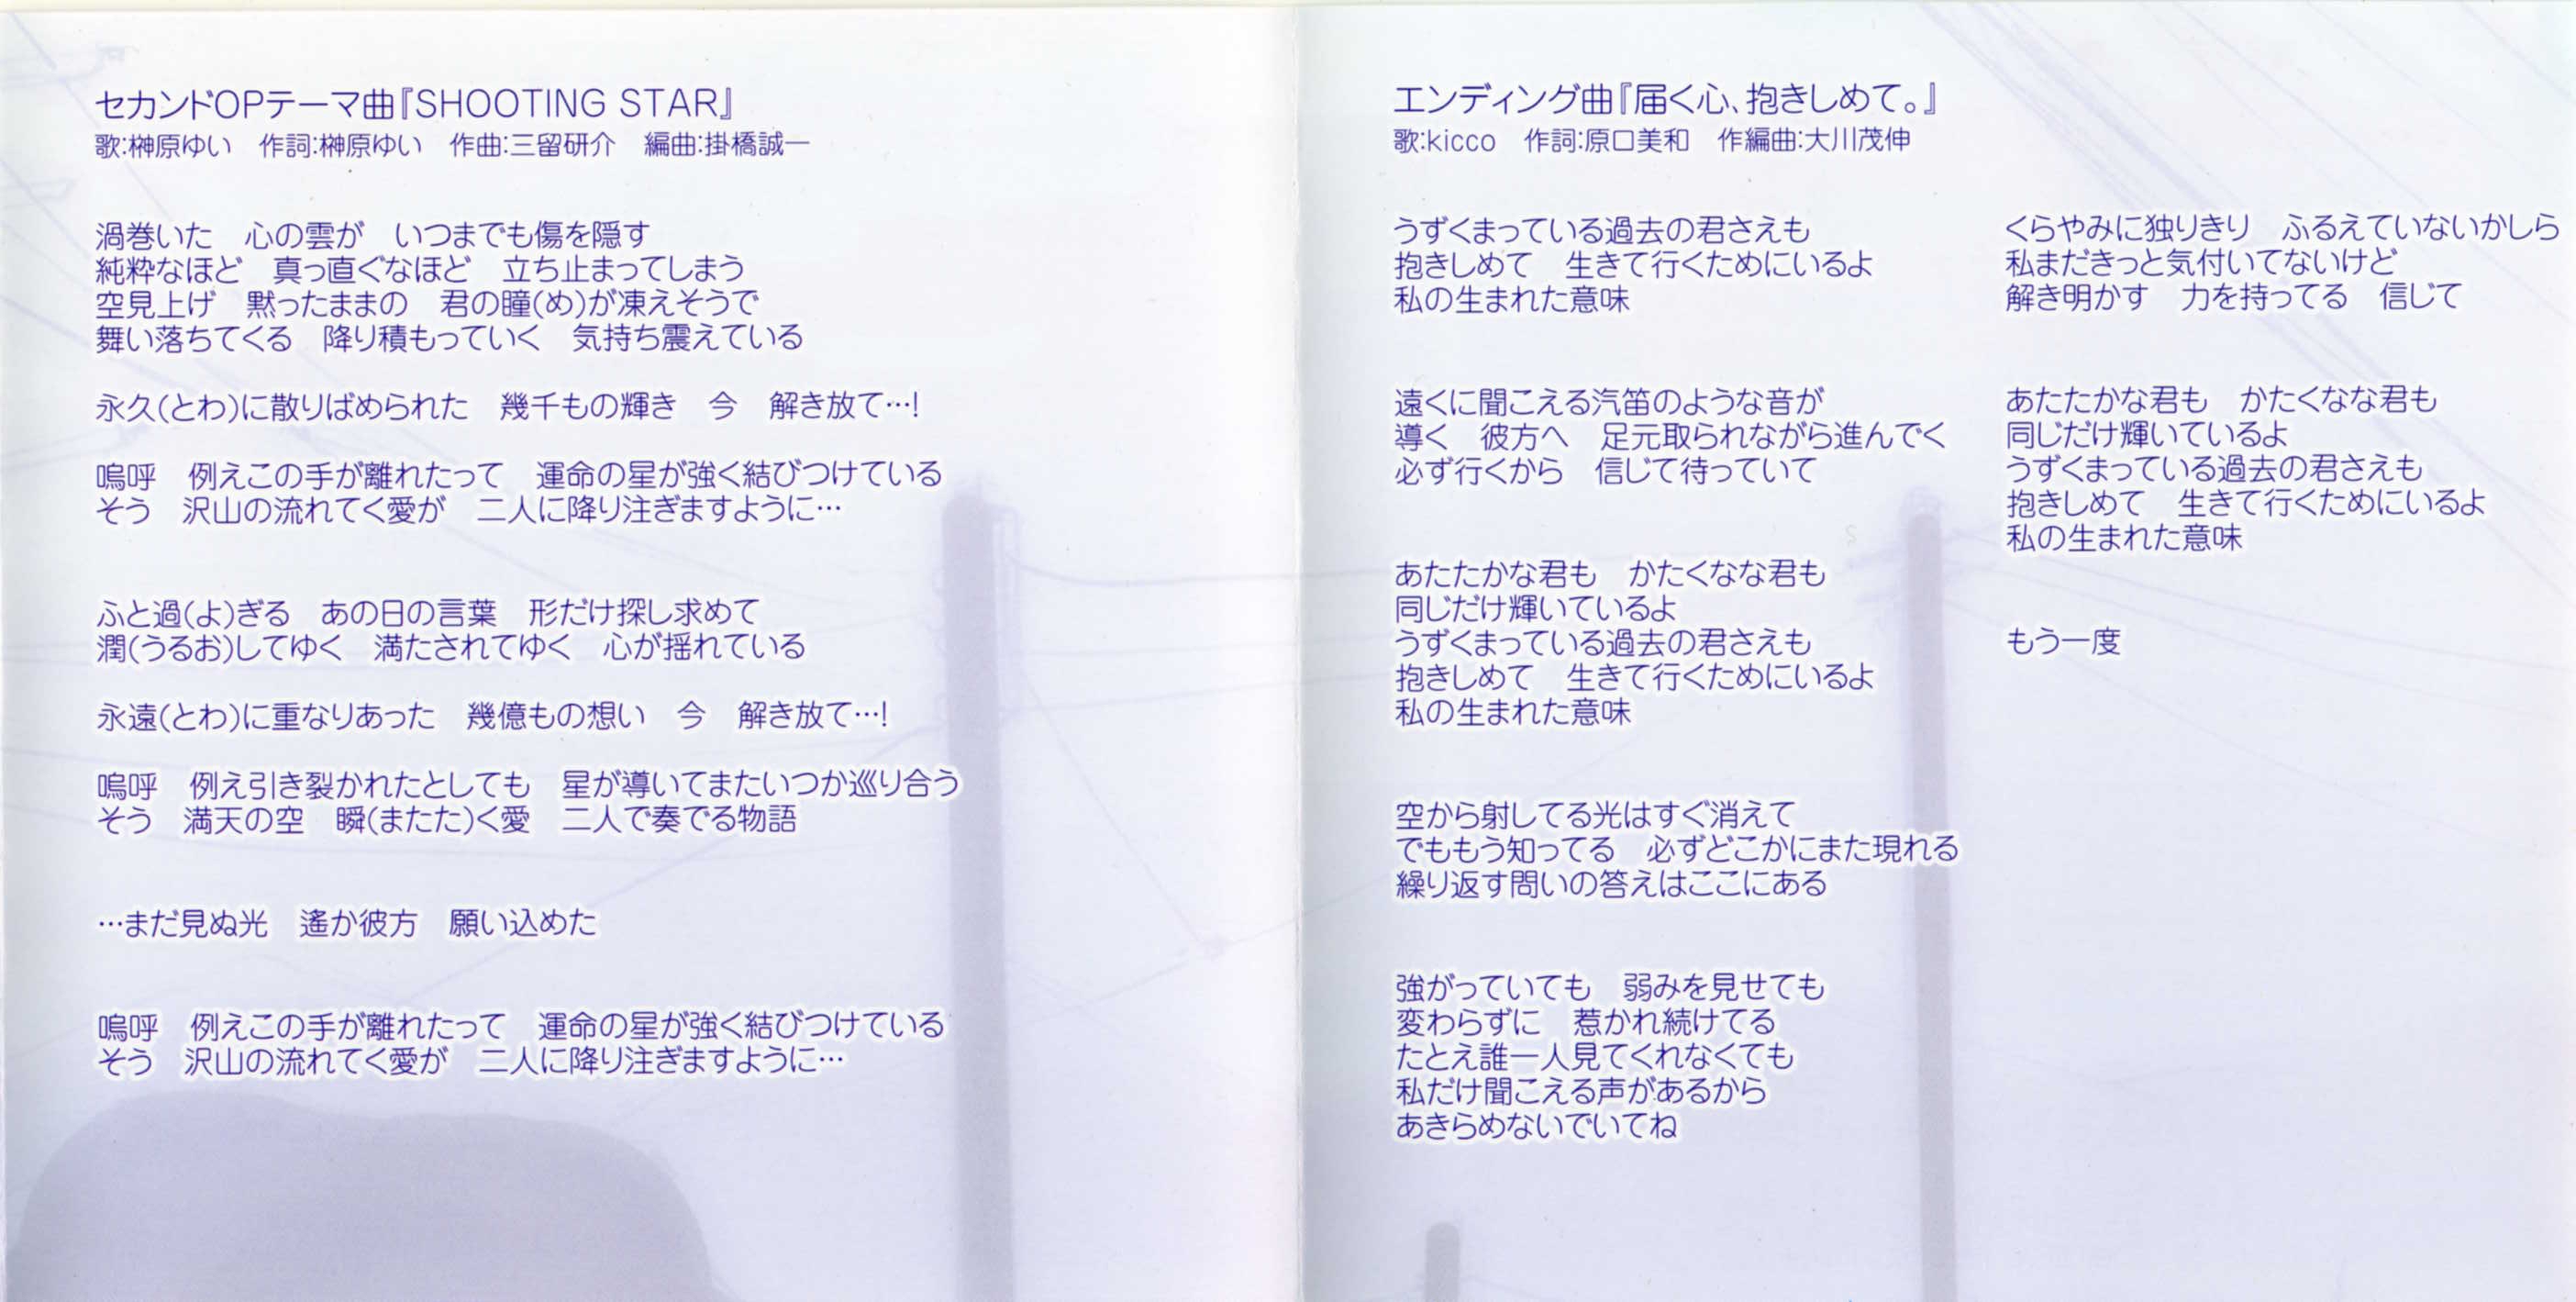 セカンドOPテーマ曲『SHOOTING STAR』
歌:榊原ゆい　作詞:榊原ゆい　作曲:三留研介　編曲:掛橋誠一
渦巻いた　心の雲が　いつまでも傷を隠す
純粋なほど　真っ直ぐなほど　立ち止まってしまう
空見上げ　黙ったままの　君の瞳(め)が凍えそうで
舞い落ちてくる　降り積もっていく　気持ち震えている
永久(とわ)に散りばめられた　幾千もの輝き　今　解き放て…!
嗚呼　例えこの手が離れたって　運命の星が強く結びつけている
そう　沢山の流れてく愛が　二人に降り注ぎますように…
ふと過(よ)ぎる　あの日の言葉　形だけ探し求めて
潤(うるお)してゆく　満たされてゆく　心が揺れている
永遠(とわ)に重なりあった　幾億もの想い　今　解き放て…!
嗚呼　例え引き裂かれたとしても　星が導いてまたいつか巡り合う
そう　満天の空　瞬(またた)く愛　二人で奏でる物語
…まだ見ぬ光　遙か彼方　願い込めた
嗚呼　例えこの手が離れたって　運命の星が強く結びつけている
そう　沢山の流れてく愛が　二人に降り注ぎますように…
エンディング曲『届く心、抱きしめて。』
歌:kicco　作詞:原口美和　作編曲:大川茂伸
うずくまっている過去の君さえも
抱きしめて　生きて行くためにいるよ
私の生まれた意味
遠くに聞こえる汽笛のような音が
導く　彼方へ　足元取られながら進んでく
必ず行くから　信じて待っていて
あたたかな君も　かたくなな君も
同じだけ輝いているよ
うずくまっている過去の君さえも
抱きしめて　生きて行くためにいるよ
私の生まれた意味
空から射してる光はすぐ消えて
でももう知ってる　必ずどこかにまた現れる
繰り返す問いの答えはここにある
強がっていても　弱みを見せても
変わらずに　惹かれ続けてる
たとえ誰一人見てくれなくても
私だけ聞こえる声があるから
あきらめないでいてね
くらやみに独りきり　ふるえていないかしら
私まだきっと気付いてないけど
解き明かす　力を持ってる　信じて
あたたかな君も　かたくなな君も
同じだけ輝いているよ
うずくまっている過去の君さえも
抱きしめて　生きて行くためにいるよ
私の生まれた意味
もう一度